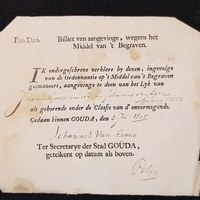 Pro Deo.
Billiet van aangevinge, wegens het
Middel van 't Begraven.
IK ondergeschreve verklare by dezen, ingevolge
van de Ordonnantie op 't Middel van 't Begraven
geëmaneert, aangevinge te doen van het Lyk van
als gehorende onder de Classis van d'onvermogende.
Gedaan binnen GOUDA, den
Johannes Van
Ter Secretarye der Stad GOUDA,
geteikent op datum als boven.